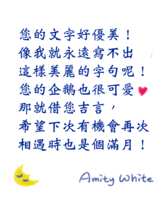 您的文字好優美！
像我就永遠寫不出
這樣美麗的字句呢！
您的企鵝也很可愛
那就借您吉言，
希望下次有機會再次
相遇時也是個滿月！
Amity White